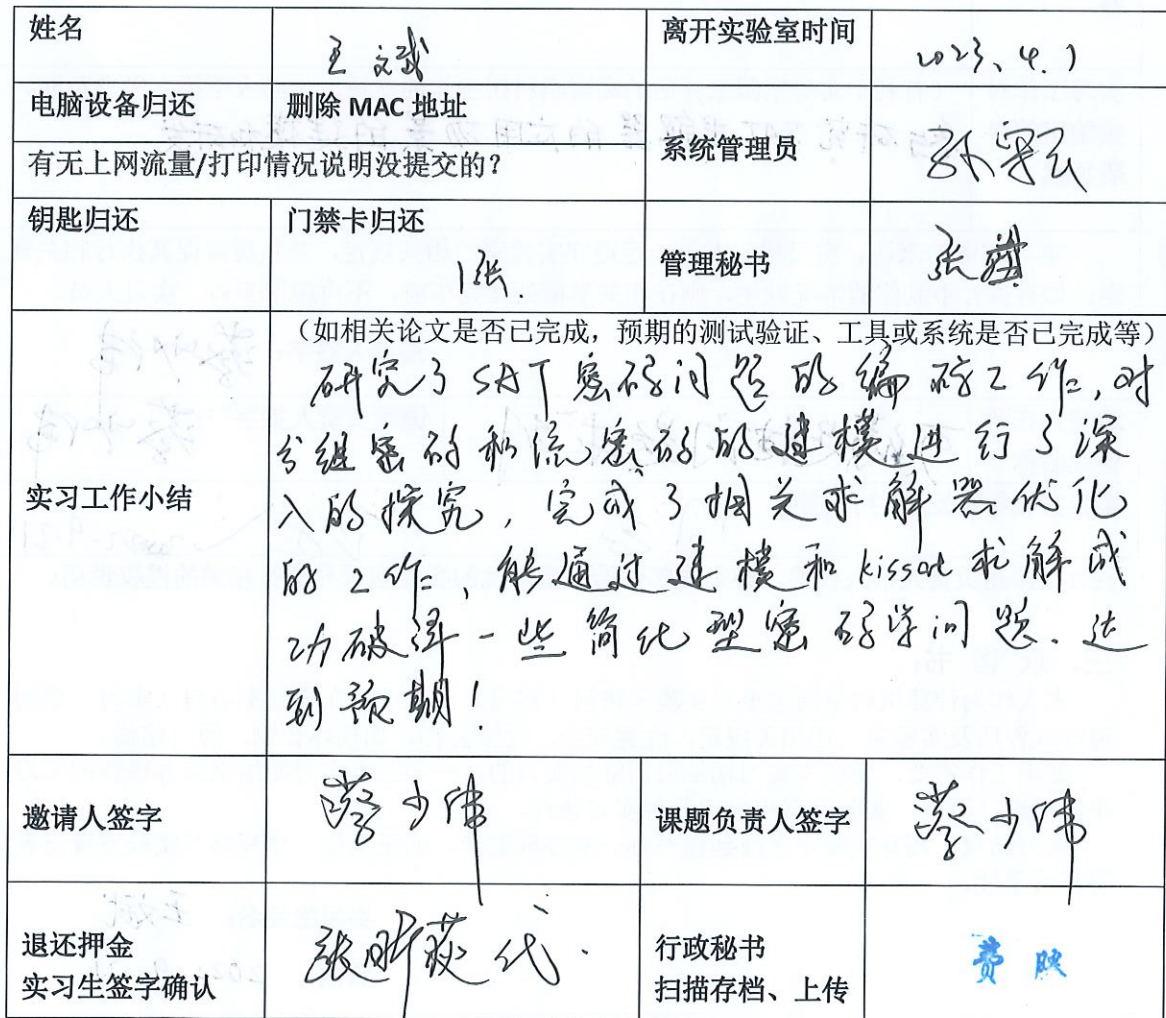 姓名 王文斌 离开实验室时间 2023.4.1
电脑设备归还 删除 MAC 地址
系统管理员
有无上网流量/打印情况说明没提交的？
钥匙归还 门禁卡归还
1张. 管理秘书
（如相关论文是否已完成，预期的测试验证、工具或系统是否已完成等）
研究了SAT密码问题的编码工作，对
分组密码和流密码的建模进行了深
实习工作小结 入的探究，完成了相关求解器优化
的工作，能通过建模和kissat求解成
功破译一些简化型密码学问题.达
到预期！
邀请人签字 蔡少伟 课题负责人签字 蔡少伟
退还押金 行政秘书
实习生签字确认 代. 扫描存档、上传 费映